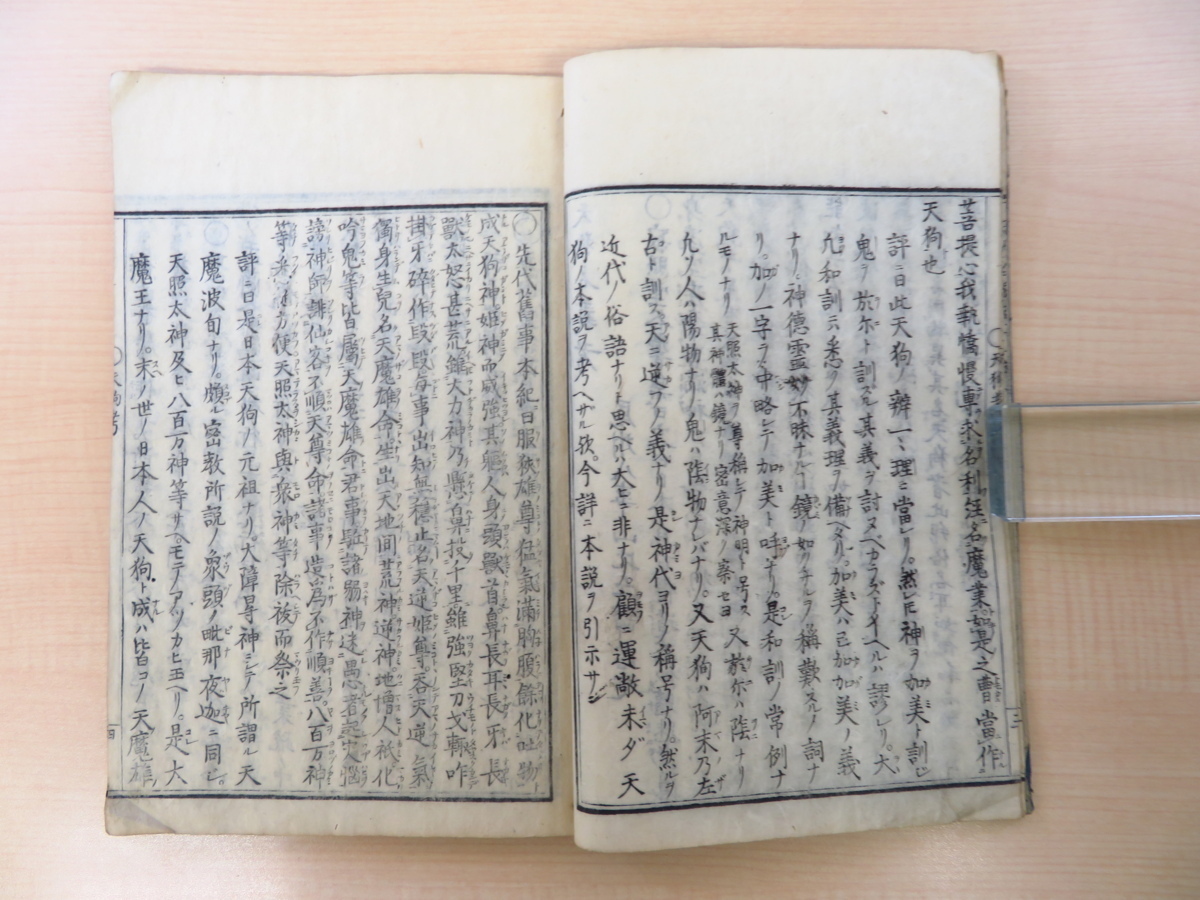 菩提心我執憍慢專求名利注名魔業如是之曹當作
天狗也
評ニ曰此天狗ノ辨一々理ニ當レリ。然レ𪜈神ヲ加美ト訓じ
鬼ヲ於尓ト訓スル其義ヲ討ヌベカラズトイヘルハ謬レリ。大
凡和訓ニ悉ク其義理ヲ備ヘタリ。加美ハ已加加美ノ義
ナリ神德靈妙不昧ナル鏡ノ如クナルヲ稱歎スルノ詞ナ
リ。加ノ一字ヲ中略シテ加美ト呼ナリ。是和訓ノ常例ナ
ルモノナリ
天照太神ヲ尊稱シテ神明ト号ス
其神體ハ鏡ナリ密意深ク察セヨ
又於尓ハ陰ナリ
凡ソ人ハ陽物ナリ鬼ハ陰物ナレバナリ。又天狗ハ阿末乃左
古ト訓ス天ニ逆フノ義ナリ是神代ヨリノ稱号ナリ。然ルヲ
近代ノ俗語ナリト思ヘルハ大ヒニ非ナリ。顧ニ運敞未ダ天
狗ノ本説ヲ考ヘサル欤。今詳ニ本説ヲ引示サン
三
○先代舊事本紀曰服狹雄尊猛氣滿胸腹餘化吐物
成天狗神姬神而威強其軀人身頭獸首鼻長耳長牙長
獸太怒甚荒雖大力神乃懸鼻投千里雖強堅刀戈輙咋
掛牙碎作段段每事出知無穩止名天逆姬尊。吞天逆氣
獨身生兒名天魔雄命生出天地間荒神逆神地憎人祇化
吟鬼等皆屬天魔雄命君事
謗神師誹仙客不順天尊命諸事造爲不作順善。八百万神
等方便天照太神與衆神等除祓而祭之
評ニ曰是日本天狗ノ元祖ナリ。大障㝵神ニシテ所謂ル天
魔波旬ナリ。頗ル密教所説ノ象頭ノ毗那夜迦ニ同じ
天照太神及ヒ八百万神等サヘモテアツカヒ玉ヘリ。是大
魔王ナリ。末ノ世ノ日本人ノ天狗ト成ハ皆コノ天魔雄
○天狗考
四